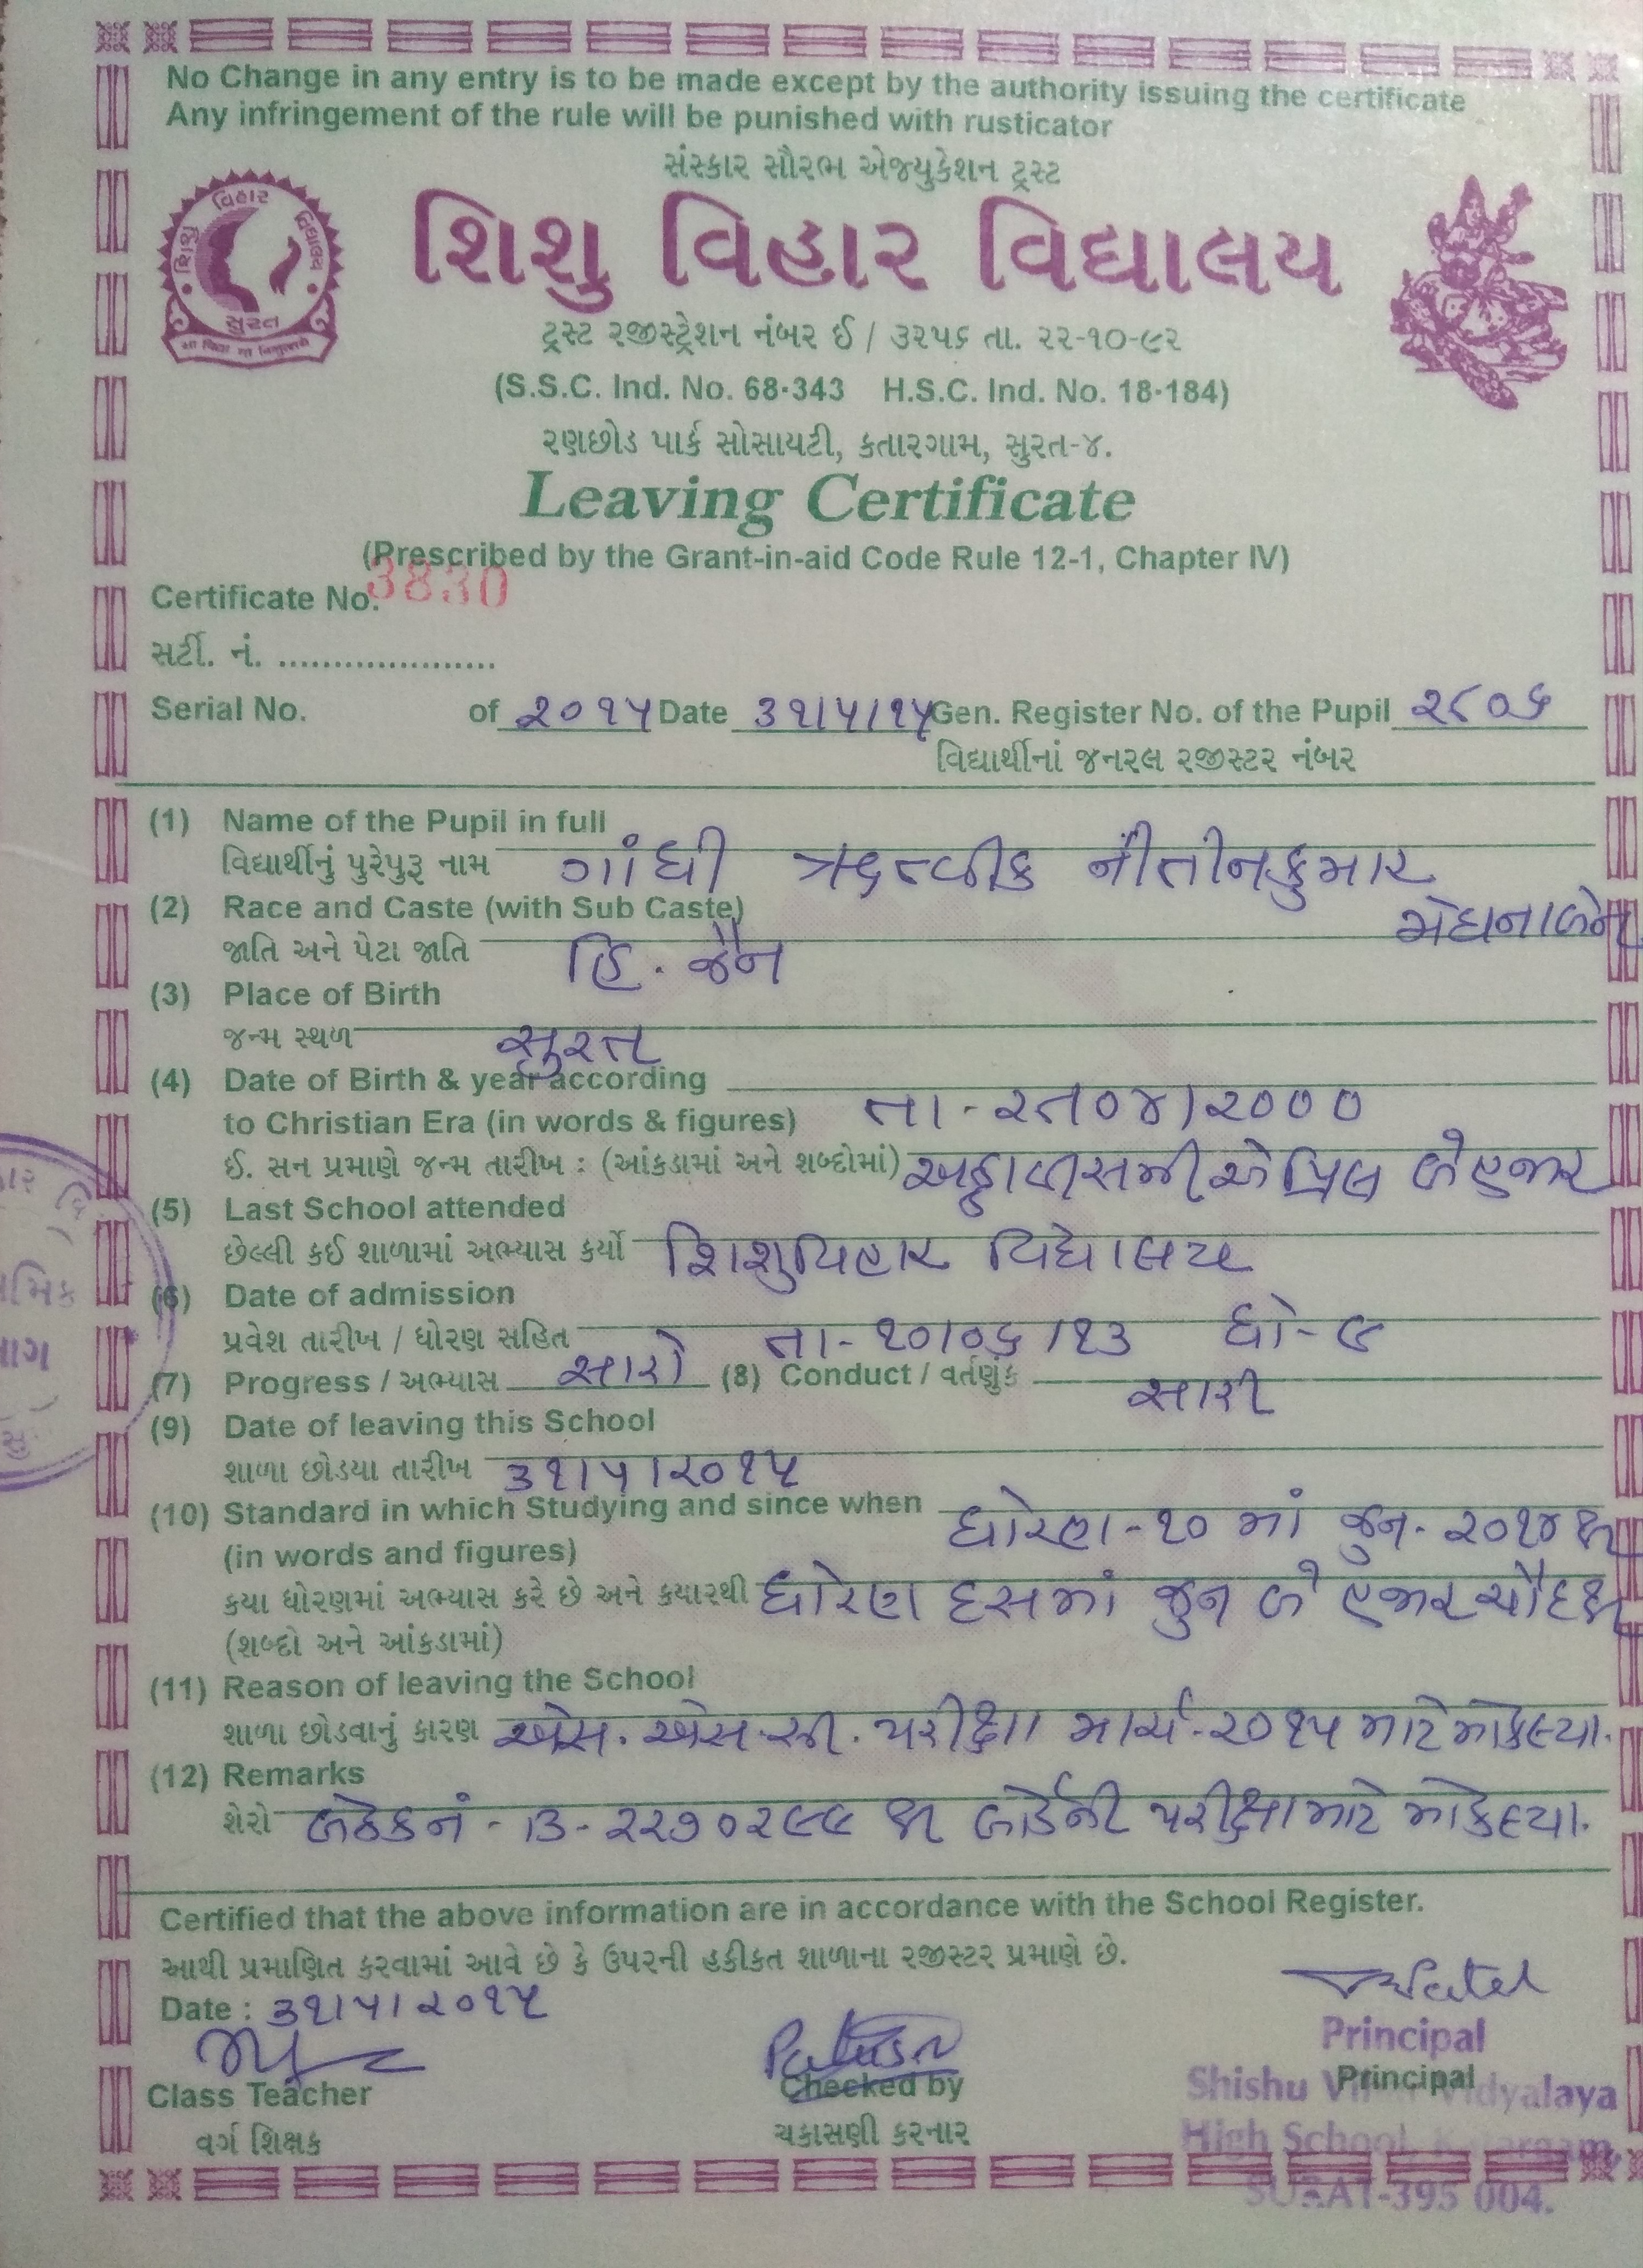 No Change in any entry is to be made except by the authority issuing the certificate
Any infringement of the rule will be punished with rusticator
સંસ્કાર સૌરભ એજ્યુકેશન ટ્રસ્ટ
શિશુ વિહાર વિદ્યાલય
શિશુ વિહાર વિદ્યાલય
સુરત
ટ્રસ્ટ રજીસ્ટ્રેશન નંબર ઈ / ૩૨૫૬ તા. ૨૨-૧૦-૯૨
(S.S.C. Ind. No. 68-343 H.S.C. Ind. No. 18-184)
રણછોડ પાર્ક સોસાયટી, કતારગામ, સુરત-૪.
Leaving Certificate
(Prescribed by the Grant-in-aid Code Rule 12-1, Chapter IV)
Certificate No. 3830
સર્ટી. નં. ....................
Serial No. of ૨૦૧૫ Date ૩૧/૫/૧૫ Gen. Register No. of the Pupil ૨૮૦૬
વિદ્યાર્થીનાં જનરલ રજીસ્ટર નંબર
(1) Name of the Pupil in full
વિદ્યાર્થીનું પુરેપુરૂ નામ ગાંધી ઋત્વીક નીતીનકુમાર
(2) Race and Caste (with Sub Caste) મેઘનાબેન
જાતિ અને પેટા જાતિ હિ. જૈન
(3) Place of Birth
જન્મ સ્થળ સુરત
(4) Date of Birth & year according
to Christian Era (in words & figures) તા-૨૮/૦૪/૨૦૦૦
ઈ. સન પ્રમાણે જન્મ તારીખ : (આંકડામાં અને શબ્દોમાં) અઠ્ઠાવીસમી એપ્રિલ બેહજાર
(5) Last School attended
છેલ્લી કઈ શાળામાં અભ્યાસ કર્યો શિશુવિહાર વિદ્યાલય
(6) Date of admission
પ્રવેશ તારીખ / ધોરણ સહિત તા-૧૦/૦૬/૧૩ ધો-૯
(7) Progress / અભ્યાસ સારો (8) Conduct / વર્તણુંક સારી
(9) Date of leaving this School
શાળા છોડયા તારીખ ૩૧/૫/૨૦૧૫
(10) Standard in which Studying and since when ધોરણ-૧૦ માં જુન-૨૦૧૪થી
(in words and figures)
કયા ધોરણમાં અભ્યાસ કરે છે અને કયારથી ધોરણ દસમાં જુન બે હજાર ચૌદથી
(શબ્દો અને આંકડામાં)
(11) Reason of leaving the School
શાળા છોડવાનું કારણ એસ.એસ.સી. પરીક્ષા માર્ચ-૨૦૧૫ માટે મોકલ્યા.
(12) Remarks
શેરો બેઠક નં - B-૨૨૭૦૨૯૯ થી બોર્ડની પરીક્ષા માટે મોકલ્યા.
Certified that the above information are in accordance with the School Register.
આથી પ્રમાણિત કરવામાં આવે છે કે ઉપરની હકીકત શાળાના રજીસ્ટર પ્રમાણે છે.
Date : ૩૧/૫/૨૦૧૫
Principal
Class Teacher Checked by Principal
Shishu Vihar Vidyalaya
વર્ગ શિક્ષક ચકાસણી કરનાર
High School, Katargam,
SURAT-395 004.